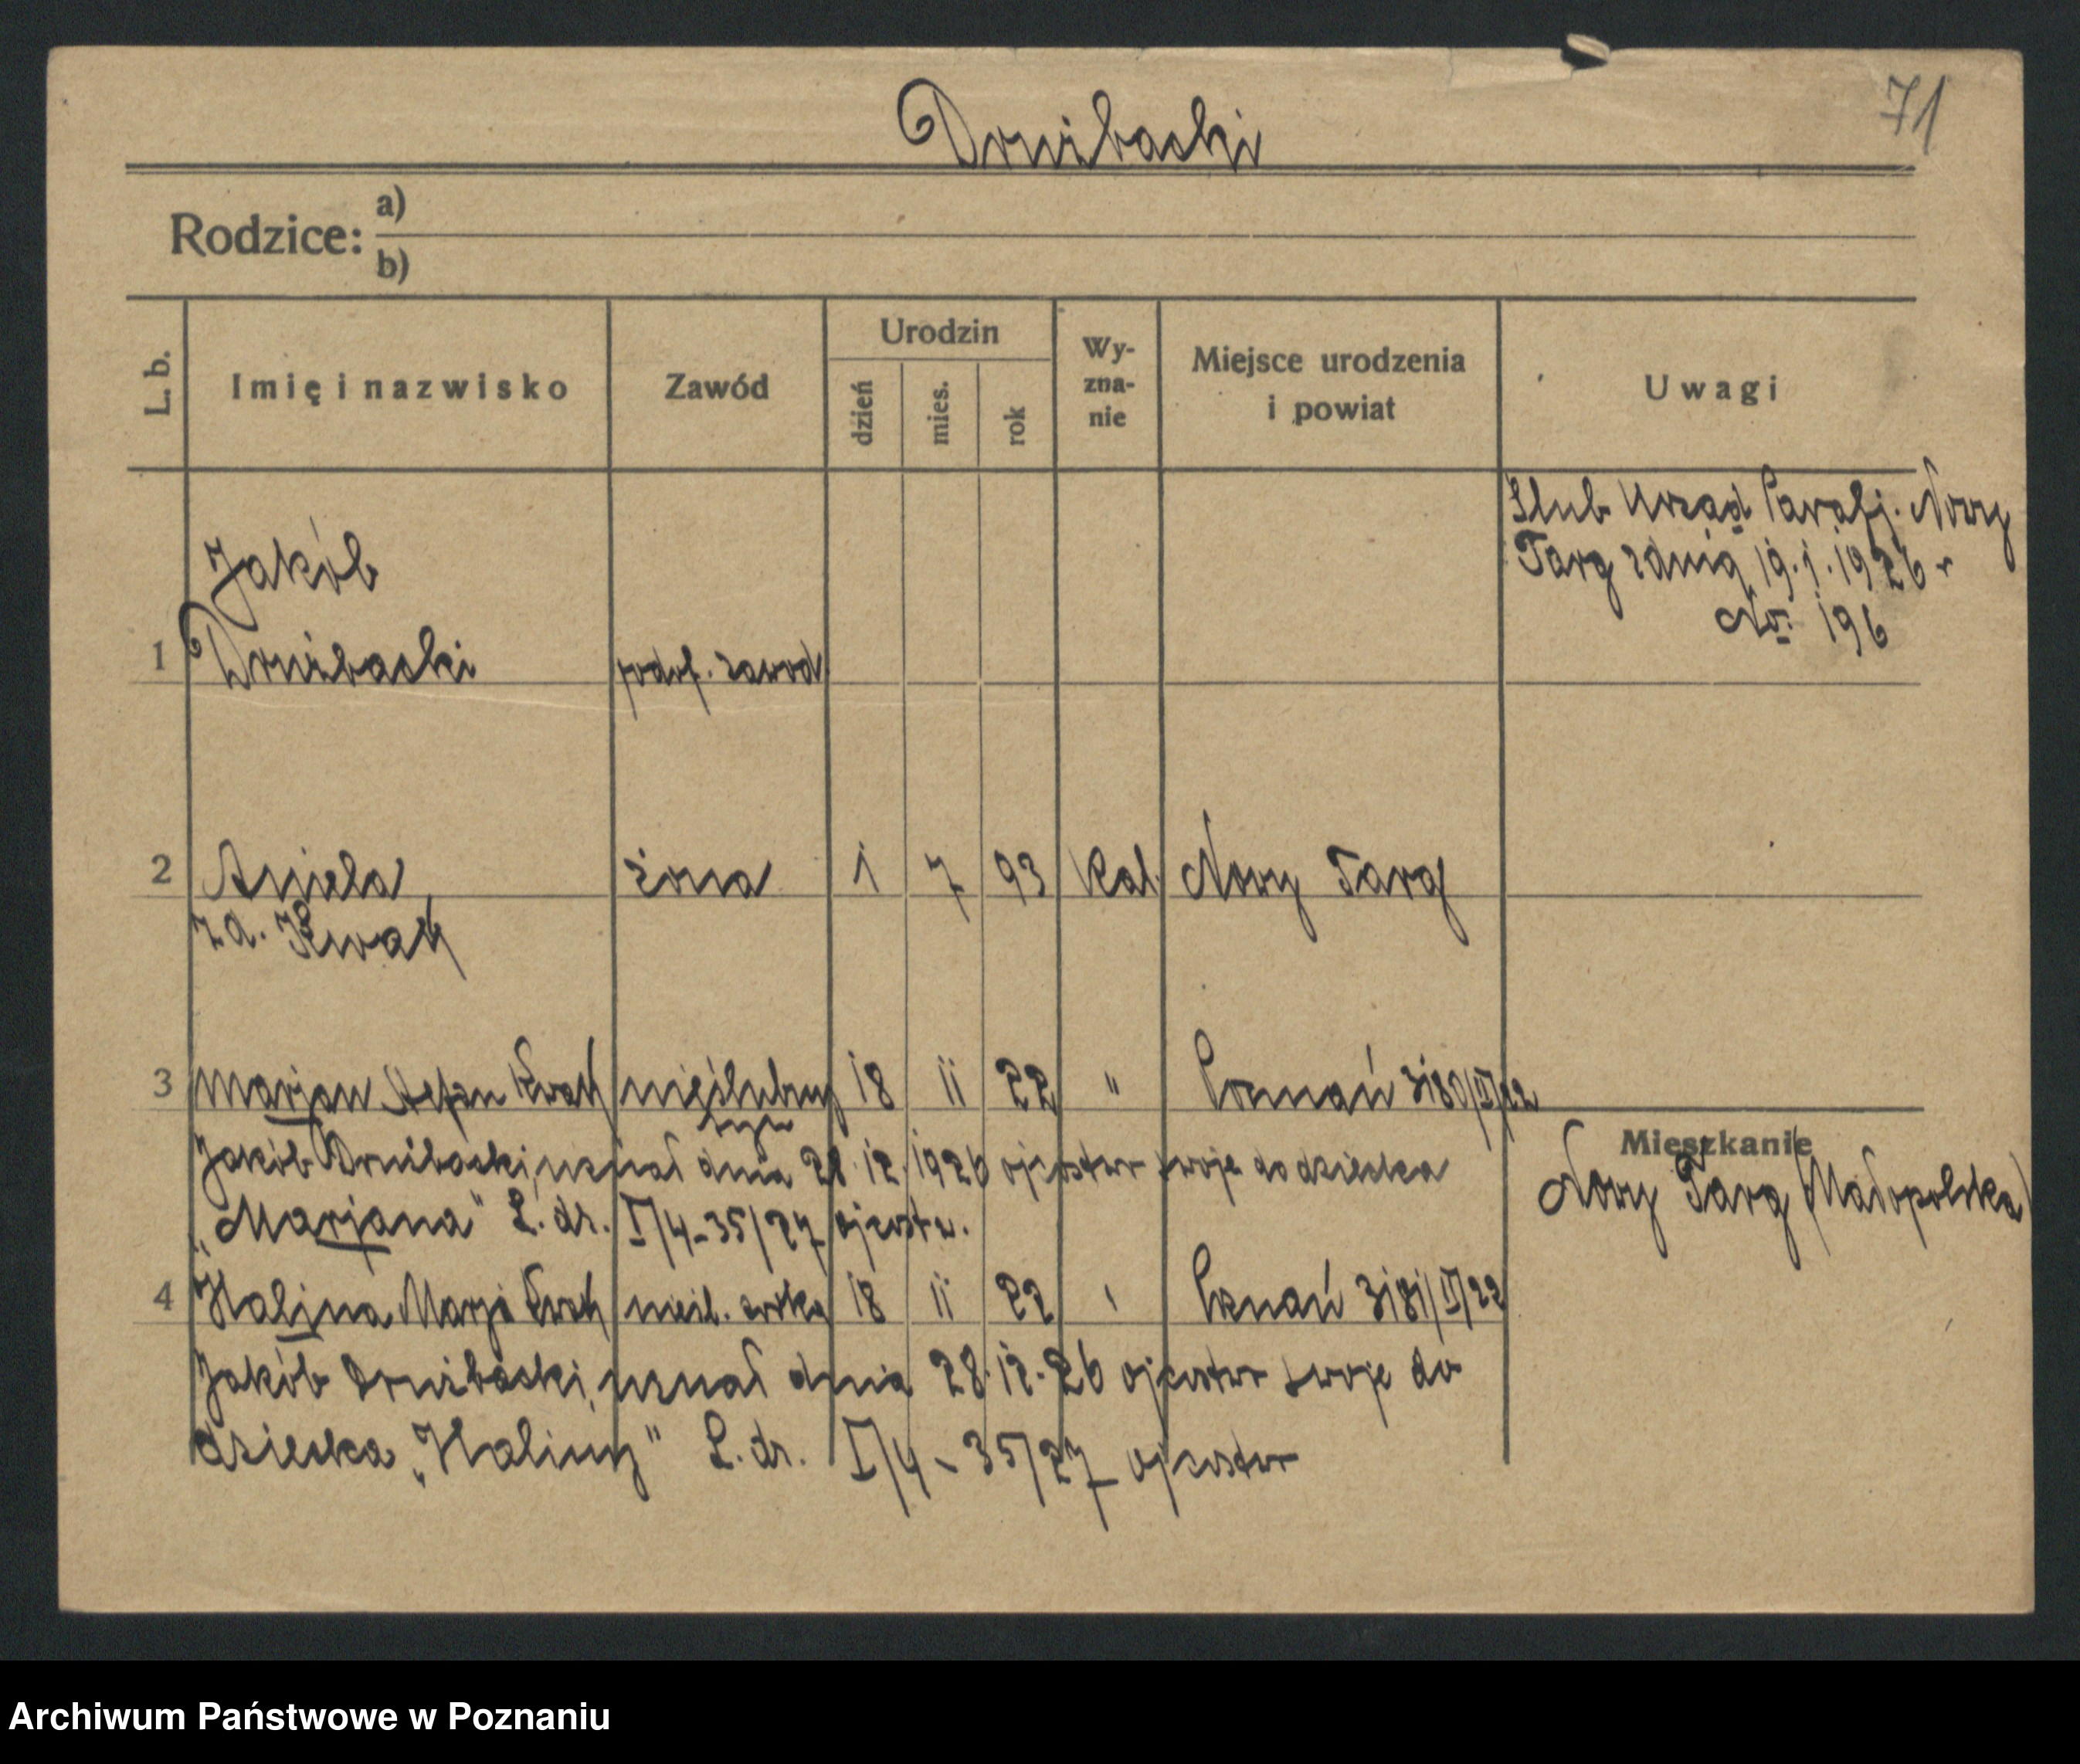 Drużbacki
71
Rodzice: a)
b)
L. b.
Imię i nazwisko
Zawód
Urodzin
dzień
mies.
rok
Wy-
zna-
nie
Miejsce urodzenia
i powiat
Uwagi
Slub Urząd Parafj. Nowy
Targ z dnia 19.1.1926 r
No: 196
Jakób
1 Drużbacki podof. zawod
2 Aniela żona 1 7 93 Kat. Nowy Targ
zd. Kwak
3 Marjan Stefan Kwak nieślubny 18 11 22 " Poznań 3180/II/22
syn
Jakób Drużbacki, uznał dnia 28.12.1926 ojcostwo swoje do dziecka
„Marjana" L. dz. I/4-35/27 ojcostw.
Mieszkanie
Nowy Targ (Małopolska)
4 Halina Marja Kwak nieśl. córka 18 11 22 " Poznań 3181/II/22
Jakób Drużbacki, uznał dnia 28.12.26 ojcostwo swoje do
dziecka „Haliny" L. dz. I/4-35/27 ojcostwo
Archiwum Państwowe w Poznaniu